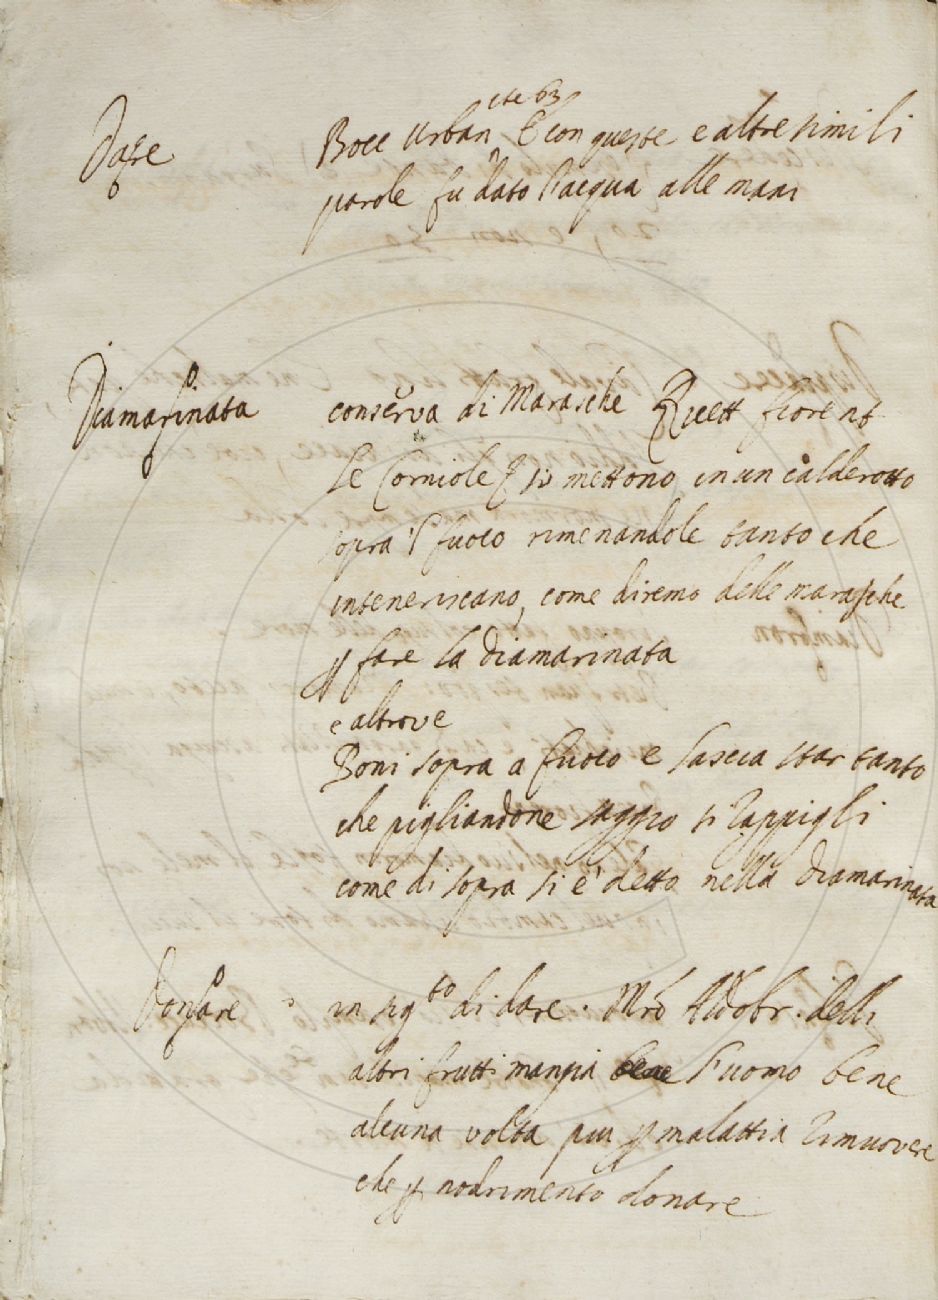 Dare
Bocc Urban cte 63 E con queste e altre simili
parole fu dato l'acqua alle mani
Diamarinata
conserva di Marasche Ricett fiorent
Le Corniole si mettono in un calderotto
sopra 'l fuoco rimenandole tanto che
inteneriscano, come diremo delle marasche
ꝑ fare la diamarinata
e altrove
Poni sopra a fuoco e lascia star tanto
che pigliandone saggio si rappigli
come di sopra si è detto nella diamarinata
Donare
in sig.to di dare. Mro Aldobr. delli
altri frutti mangia bene l'uomo bene
alcuna volta piu ꝑ malattia rimuovere
che ꝑ nodrimento donare